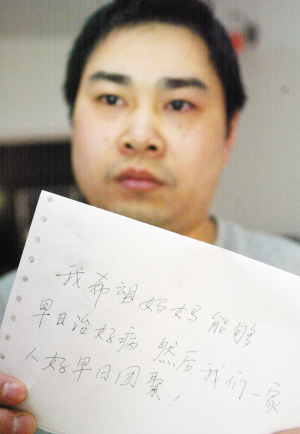 我希望妈妈能够
早日治好病,然后我们一家
人好早日团聚!